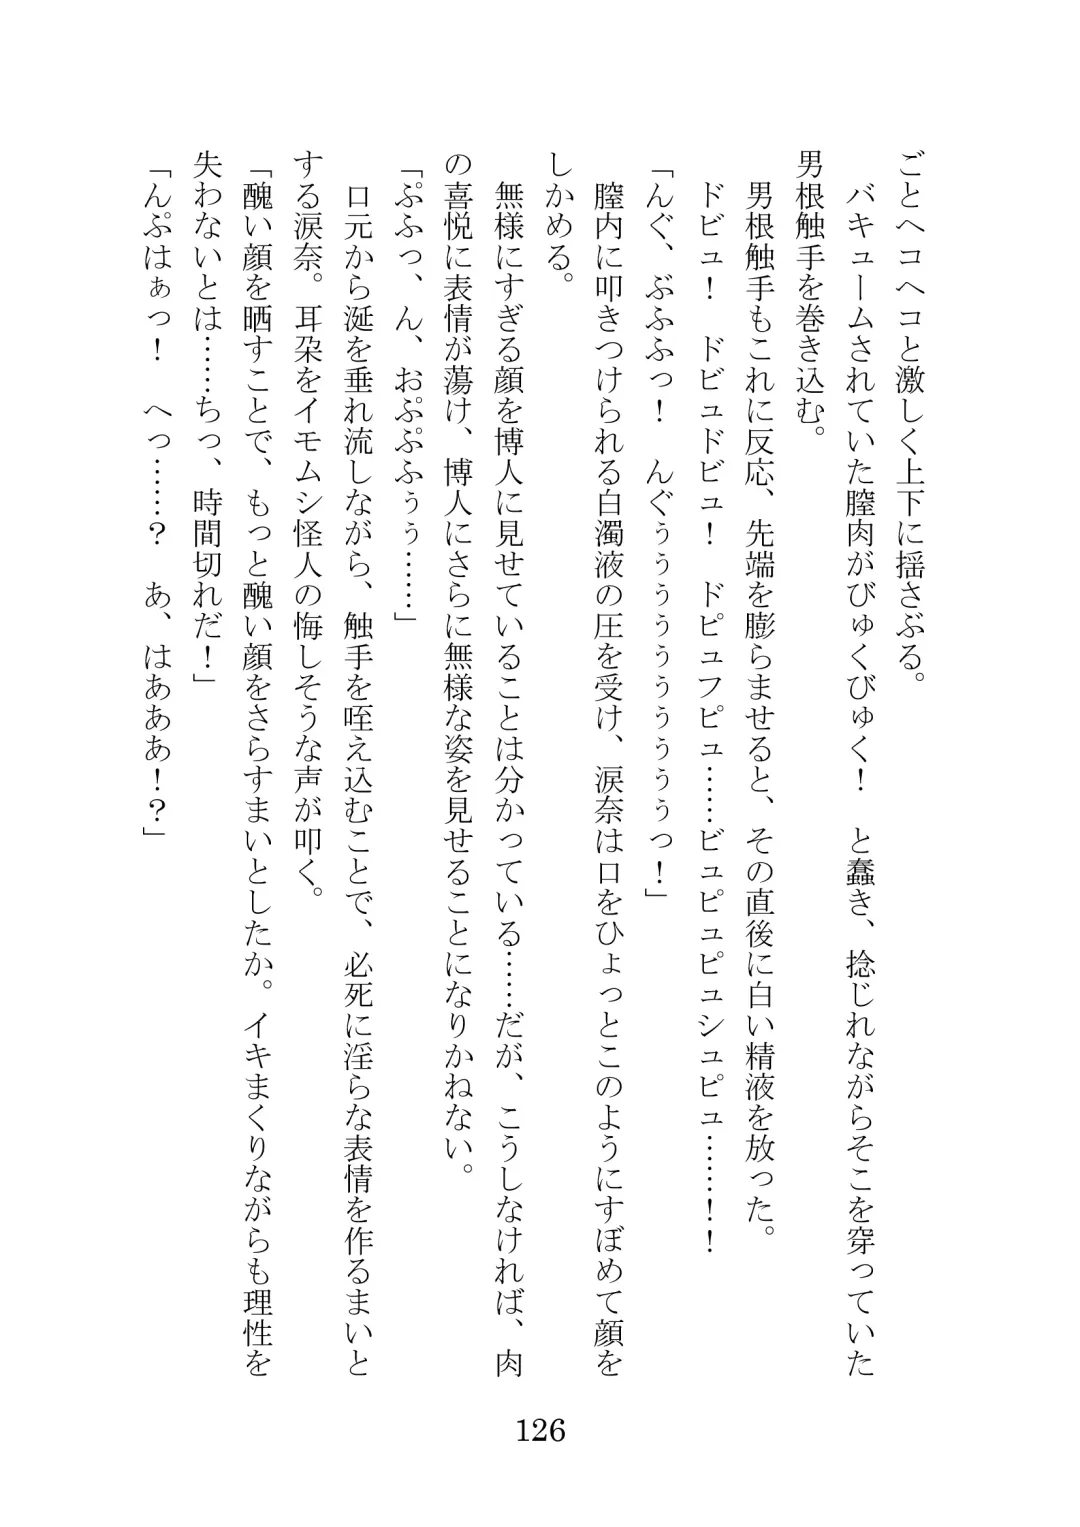 ごとヘコヘコと激しく上下に揺さぶる。
　バキュームされていた膣肉がびゅくびゅく！　と蠢き、捻じれながらそこを穿っていた
男根触手を巻き込む。
　男根触手もこれに反応、先端を膨らませると、その直後に白い精液を放った。
　ドビュ！　ドビュドビュ！　ドピュフピュ……ビュピュピュシュピュ……！！
「んぐ、ぶふふっ！　んぐぅぅぅぅぅぅぅぅぅっ！」
　膣内に叩きつけられる白濁液の圧を受け、涙奈は口をひょっとこのようにすぼめて顔を
しかめる。
　無様にすぎる顔を博人に見せていることは分かっている……だが、こうしなければ、肉
の喜悦に表情が蕩け、博人にさらに無様な姿を見せることになりかねない。
「ぷふっ、ん、おぷぷふぅぅ……」
　口元から涎を垂れ流しながら、触手を咥え込むことで、必死に淫らな表情を作るまいと
する涙奈。耳朶をイモムシ怪人の悔しそうな声が叩く。
「醜い顔を晒すことで、もっと醜い顔をさらすまいとしたか。イキまくりながらも理性を
失わないとは……ちっ、時間切れだ！」
「んぷはぁっ！　へっ……？　あ、はあああ！？」
126